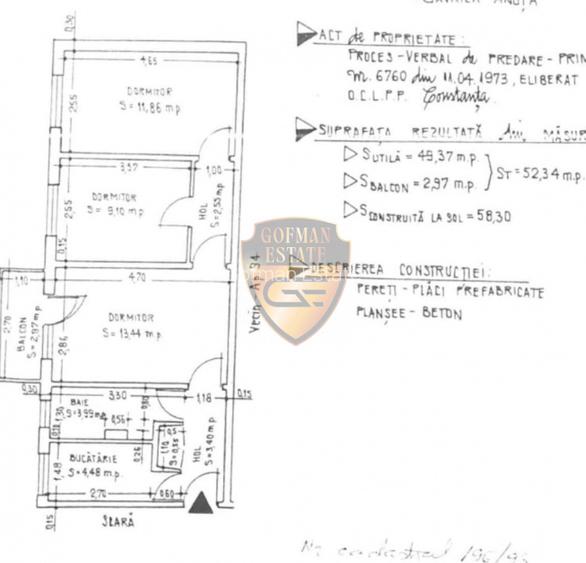 ACT de PROPRIETATE:
PROCES-VERBAL de PREDARE-PRIN
nr. 6760 din 11.04.1973, ELIBERAT
O.C.L.P.P. Constanța.
SUPRAFAȚA REZULTATĂ din MĂSUR
SUTILĂ = 49,37 m.p.
SBALCON = 2,97 m.p.
ST = 52,34 m.p.
SCONSTRUITĂ LA SOL = 58,30
DESCRIEREA CONSTRUCȚIEI:
PEREȚI - PLĂCI PREFABRICATE
PLANȘEE - BETON
0,30
4,65
DORMITOR
S = 11,86 m.p.
2,55
3,57
1,00
DORMITOR
S = 9,10 m.p.
2,55
HOL
S = 2,53 m.p.
0,15
GOFMAN
ESTATE
4,70
1,10
2,70
BALCON
S = 2,97 m.p.
DORMITOR
S = 13,44 m.p.
2,86
Vecin Ap. 34
0,30
3,30
1,18
0,15
BAIE
S = 3,99 m.p.
1,30
0,56
0,80
0,10
0,26
0,5
1,10
S = 0,55
HOL
S = 3,40 m.p.
BUCĂTĂRIE
S = 4,48 m.p.
1,48
2,70
0,60
0,15
SCARĂ
Nr cadastral 196/93